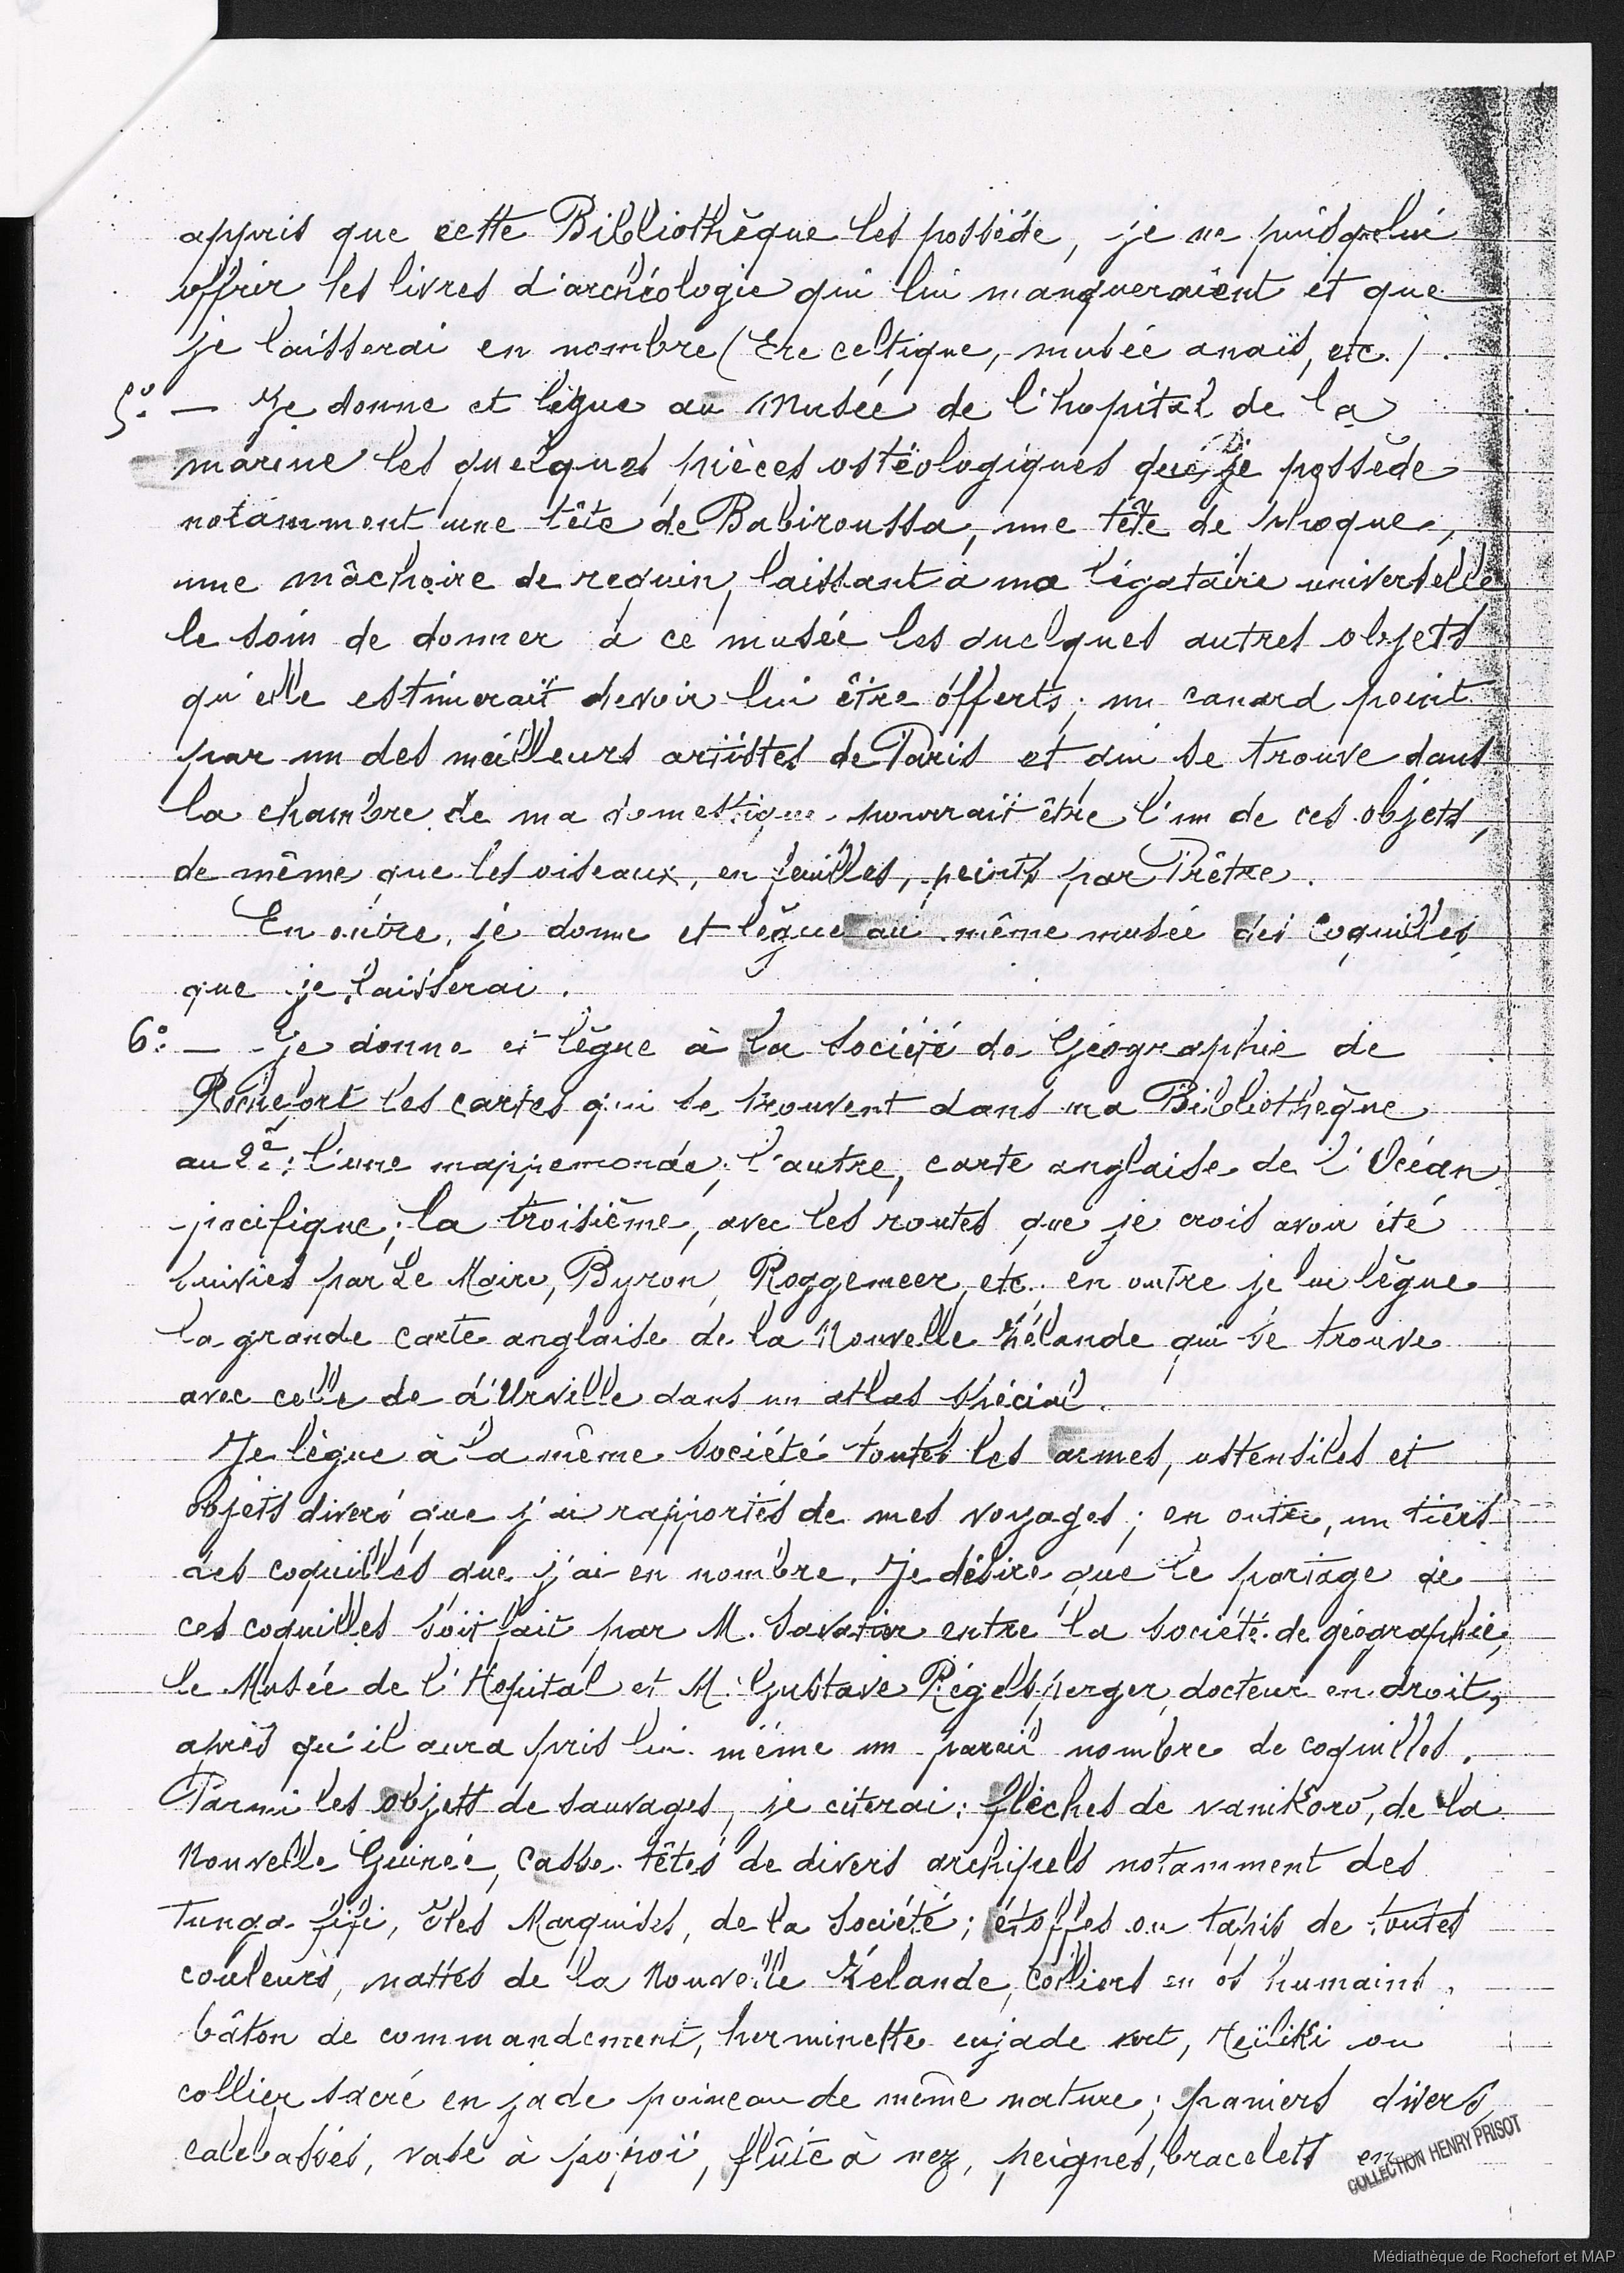 appris que cette Bibliothèque les possède, je ne puis que lui
offrir les livres d'archéologie qui lui manqueraient et que
je laisserai en nombre (Ere celtique, musée anaïs, etc.).
5º. — Je donne et lègue au Musée de l'hopital de la
marine les quelques pièces ostéologiques que je possède
notamment une tête de Babiroussa, une tête de phoque,
une mâchoire de requin, laissant à ma légataire universelle
le soin de donner à ce musée les quelques autres objets
qu'elle estimerait devoir lui être offerts; un canard peint
par un des meilleurs artistes de Paris et qui se trouve dans
la chambre de ma domestique pourrait être l'un de ces objets,
de même que les oiseaux, en feuilles, peints par Prêtre.
En outre, je donne et lègue au même musée des coquilles
que je laisserai.
6º: — Je donne et lègue à la Société de Géographie de
Rochefort les cartes qui se trouvent dans ma Bibliothèque
au 2e: l'une mappemonde; l'autre, carte anglaise de l'Océan
pacifique; la troisième, avec les routes que je crois avoir été
suivies par Le Maire, Byron, Roggemeer, etc. en outre je lui lègue
la grande carte anglaise de la Nouvelle Zélande qui se trouve
avec celle de d'Urville dans un atlas spécial.
Je lègue à la même Société toutes les armes, ustensiles et
objets divers que j'ai rapportés de mes voyages; en outre, un tiers
des coquilles que j'ai en nombre. Je désire que le partage de
ces coquilles soit fait par M. Savatier entre la société de géographie,
le Musée de l'Hopital et M. Gustave Régelsperger, docteur en droit,
après qu'il aura pris lui même un pareil nombre de coquilles.
Parmi les objets de sauvages, je citerai: flèches de vanikoro, de la
Nouvelle Guinée, Casse-têtes de divers archipels notamment des
Tunga fifi, îles Marquises, de la Société; étoffes ou tapis de toutes
couleurs, nattes de la Nouvelle Zélande, colliers en os humains,
bâton de commandement, herminette en jade vert, Heïtiki ou
collier sacré en jade poinçon de même nature; paniers divers,
calebasses, vase à popoï, flûte à nez, peignes, bracelets en
COLLECTION HENRY PRISOT
Médiathèque de Rochefort et MAP